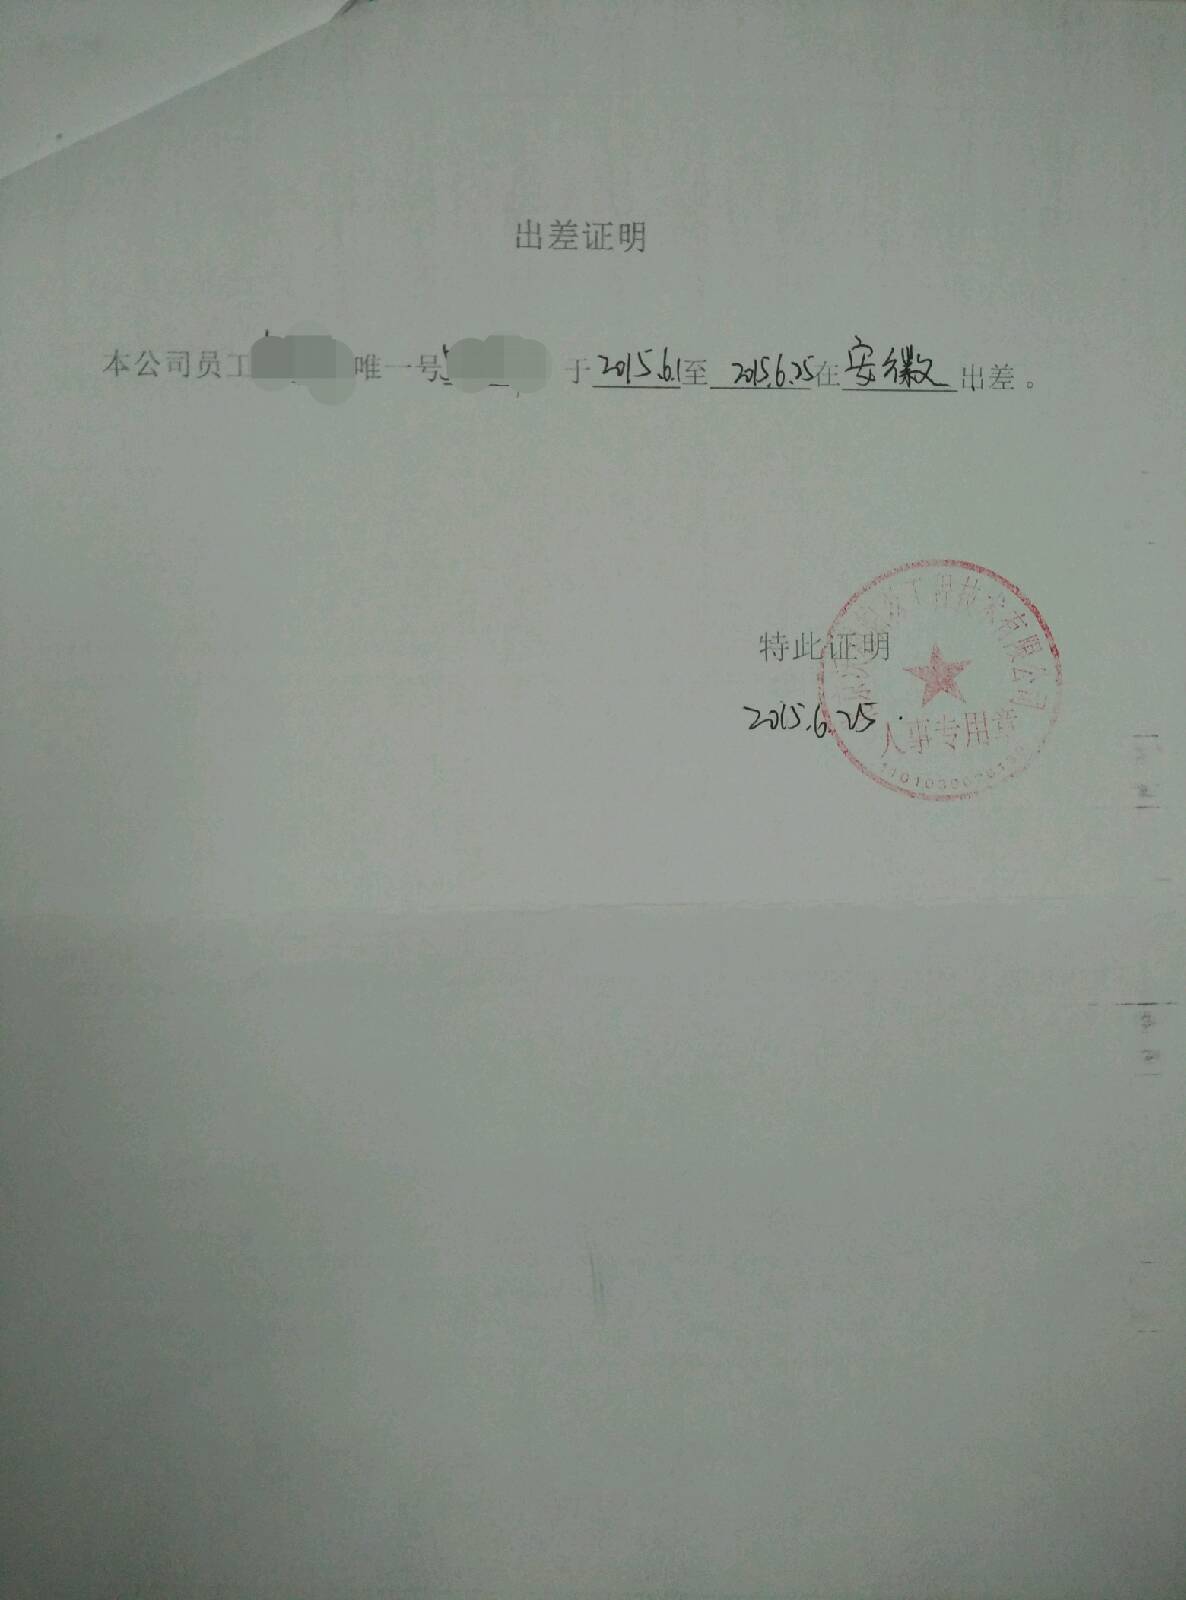 出差证明
本公司员工 唯一号 于2015.6.1至 2015.6.25在安徽出差。
特此证明
2015.6.25.
工程技术有限公司
人事专用章